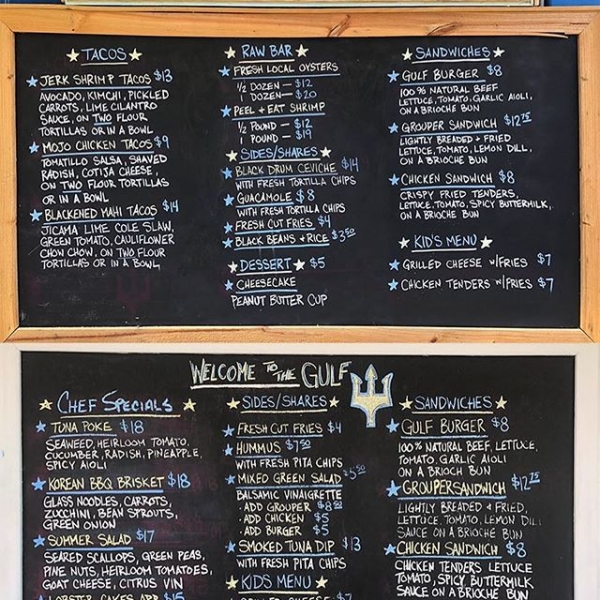 TACOS
JERK SHRIMP TACOS $13
AVOCADO, KIMCHI, PICKLED
CARROTS, LIME CILANTRO
SAUCE, ON TWO FLOUR
TORTILLAS OR IN A BOWL
MOJO CHICKEN TACOS $9
TOMATILLO SALSA, SHAVED
RADISH, COTIJA CHEESE,
ON TWO FLOUR TORTILLAS
OR IN A BOWL
BLACKENED MAHI TACOS $14
JICAMA LIME COLE SLAW,
GREEN TOMATO, CAULIFLOWER
CHOW CHOW, ON TWO FLOUR
TORTILLAS OR IN A BOWL
RAW BAR
FRESH LOCAL OYSTERS
1/2 DOZEN — $12
1 DOZEN — $20
PEEL + EAT SHRIMP
1/2 POUND — $12
1 POUND — $19
SIDES/SHARES
BLACK DRUM CEVICHE $14
WITH FRESH TORTILLA CHIPS
GUACAMOLE $8
WITH FRESH TORTILLA CHIPS
FRESH CUT FRIES $4
BLACK BEANS + RICE $3.50
DESSERT $5
CHEESECAKE
PEANUT BUTTER CUP
SANDWICHES
GULF BURGER $8
100% NATURAL BEEF
LETTUCE, TOMATO, GARLIC AIOLI,
ON A BRIOCHE BUN
GROUPER SANDWICH $12.75
LIGHTLY BREADED + FRIED
LETTUCE, TOMATO, LEMON DILL,
ON A BRIOCHE BUN
CHICKEN SANDWICH $8
CRISPY FRIED TENDERS,
LETTUCE, TOMATO, SPICY BUTTERMILK,
ON A BRIOCHE BUN
KID'S MENU
GRILLED CHEESE W/FRIES $7
CHICKEN TENDERS W/FRIES $7
WELCOME TO THE GULF
CHEF SPECIALS
TUNA POKE $18
SEAWEED, HEIRLOOM TOMATO,
CUCUMBER, RADISH, PINEAPPLE,
SPICY AIOLI
KOREAN BBQ BRISKET $18
GLASS NOODLES, CARROTS,
ZUCCHINI, BEAN SPROUTS,
GREEN ONION
SUMMER SALAD $17
SEARED SCALLOPS, GREEN PEAS,
PINE NUTS, HEIRLOOM TOMATOES,
GOAT CHEESE, CITRUS VIN
LOBSTER CAKES APP $15
SIDES/SHARES
FRESH CUT FRIES $4
HUMMUS $7.50
WITH FRESH PITA CHIPS
MIXED GREEN SALAD $5.50
BALSAMIC VINAIGRETTE
· ADD GROUPER $8.50
· ADD CHICKEN $5
· ADD BURGER $5
SMOKED TUNA DIP $13
WITH FRESH PITA CHIPS
KID'S MENU
GRILLED CHEESE $7
SANDWICHES
GULF BURGER $8
100% NATURAL BEEF, LETTUCE,
TOMATO, GARLIC AIOLI
ON A BRIOCH BUN
GROUPER SANDWICH $12.75
LIGHTLY BREADED + FRIED,
LETTUCE, TOMATO, LEMON DILL
SAUCE ON A BRIOCHE BUN
CHICKEN SANDWICH $8
CHICKEN TENDERS LETTUCE
TOMATO, SPICY BUTTERMILK
SAUCE ON A BRIOCHE BUN